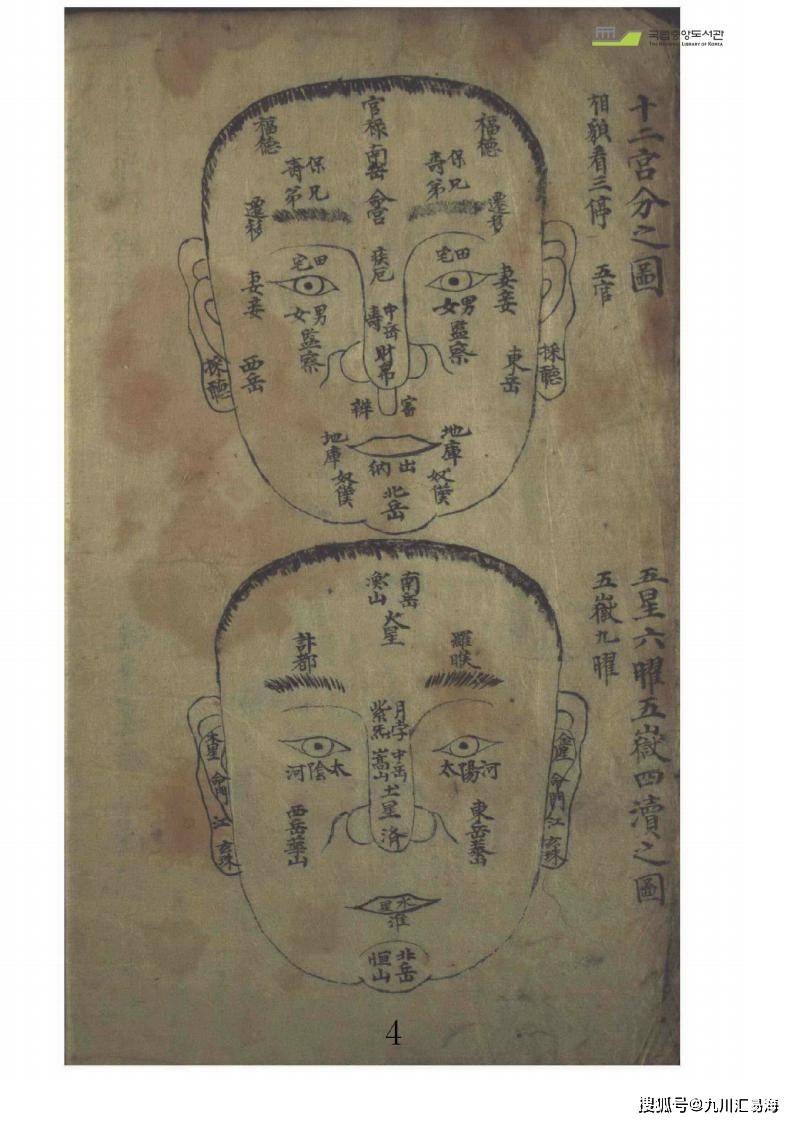 국립중앙도서관
THE NATIONAL LIBRARY OF KOREA
十二宮分之圖
相貌看三停 五官
官祿
福德
福德
南岳
保壽
兄弟
保壽
兄弟
命宮
遷移
遷移
疾厄
田宅
田宅
妻妾
妻妾
男女
男女
中岳
壽
監察
監察
財帛
西岳
東岳
採聽
採聽
地庫
地庫
出納
奴僕
奴僕
北岳
五星六曜五嶽四瀆之圖
五嶽九曜
南岳
山
火星
計都
羅睺
月孛
紫炁
中岳
嵩山
太陰河
太陽河
土星
済
金星
命門
江
玄珠
命門
江
玄珠
西岳華山
東岳泰山
水星
淮
北岳
恒山
4
搜狐号@九川汇易海